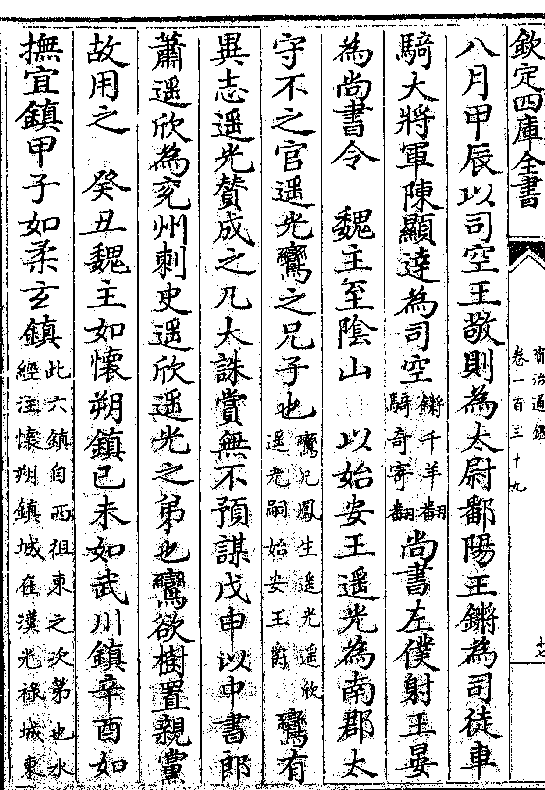 欽定四庫全書
資治通鑑
卷一百三十九
八月甲辰以司空王敬則為太尉鄱陽王鏘為司徒車
騎大將軍陳顯達為司空
鏘千羊翻
騎奇寄翻
尚書左僕射王晏
為尚書令　魏主至陰山　以始安王遥光為南郡太
守不之官遥光鸞之兄子也
鸞兄鳳生遥光遥欣
遥光嗣始安王爵
鸞有
異志遥光賛成之凡大誅賞無不預謀戊申以中書郎
蕭遥欣為兖州刺史遥欣遥光之弟也鸞欲樹置親黨
故用之　癸丑魏主如懷朔鎮己未如武川鎮辛酉如
撫宜鎮甲子如柔玄鎮
此六鎮自西徂東之次第也水
經注懷朔鎮城在漢光禄城東